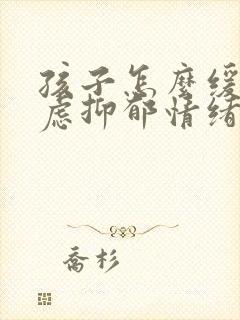 孩子怎麼缓
虑抑郁情绪
喬杉